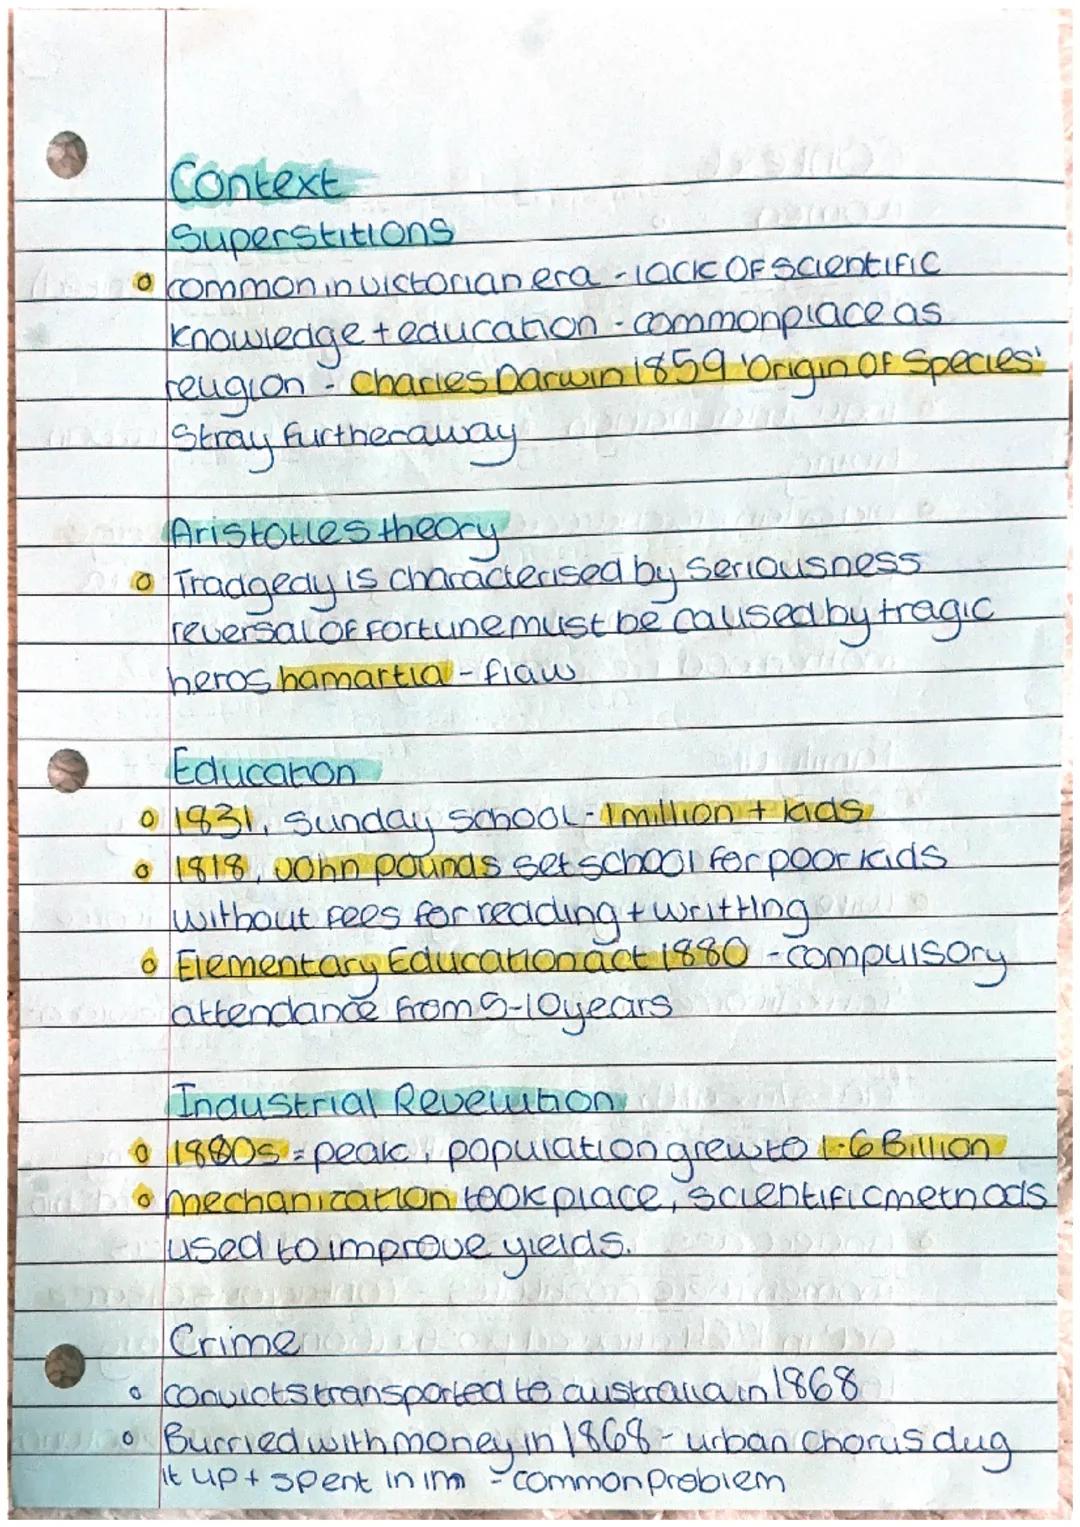 Context
Superstitions
common in victorian era - lack of scientific
knowledge + education - commonplace as
religion - Charles Darwin 1859 'Origin of Species'
Stray further away
Aristotles theory
Tradgedy is characterised by seriousness
reversal of fortune must be caused by tragic
heros hamartia - flaw
Education
1831, Sunday school - 1 million + kids
1818, John pounds set school for poor kids
without fees for reading + writting
Elementary Education act 1880 - compulsory
attendance from 5-10 years
Industrial Revelution
1980s = peak, population grew to 1.6 Billion
mechanization took place, scientific methods
used to improve yields.
Crime
convicts transported to australia in 1868
Burried with money in 1868 - urban chorus dug
it up + spent in inn - common problem